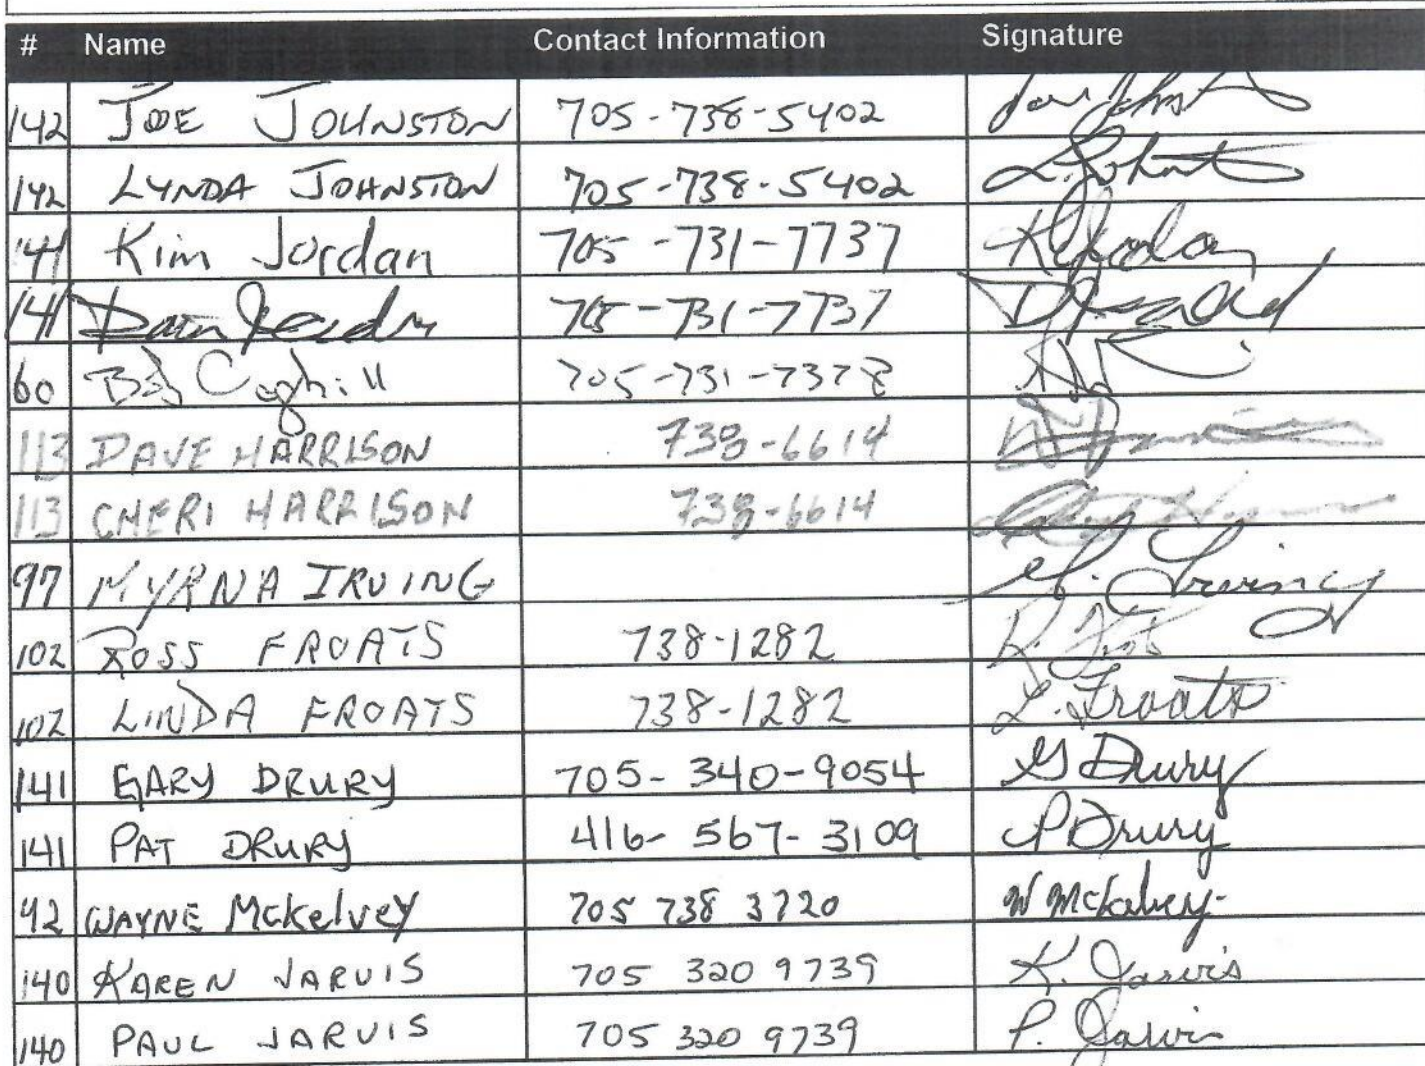 # Name Contact Information Signature
142 JOE JOHNSTON 705-738-5402
142 LYNDA JOHNSTON 705-738-5402 L. Johnst
141 Kim Jordan 705-731-7737 K Jordan
141 Jordan 705-731-7737
60 Bob Coghill 705-731-7378
113 DAVE HARRISON 738-6614
113 CHERI HARRISON 738-6614
97 MYRNA IRVING M. Irving
102 ROSS FROATS 738-1282 R. Froats
102 LINDA FROATS 738-1282 L. Froats
141 GARY DRURY 705-340-9054 G Drury
141 PAT DRURY 416-567-3109 P Drury
92 WAYNE McKelvey 705 738 3720 W McKelvey
140 KAREN JARVIS 705 320 9739 K. Jarvis
140 PAUL JARVIS 705 320 9739 P. Jarvis